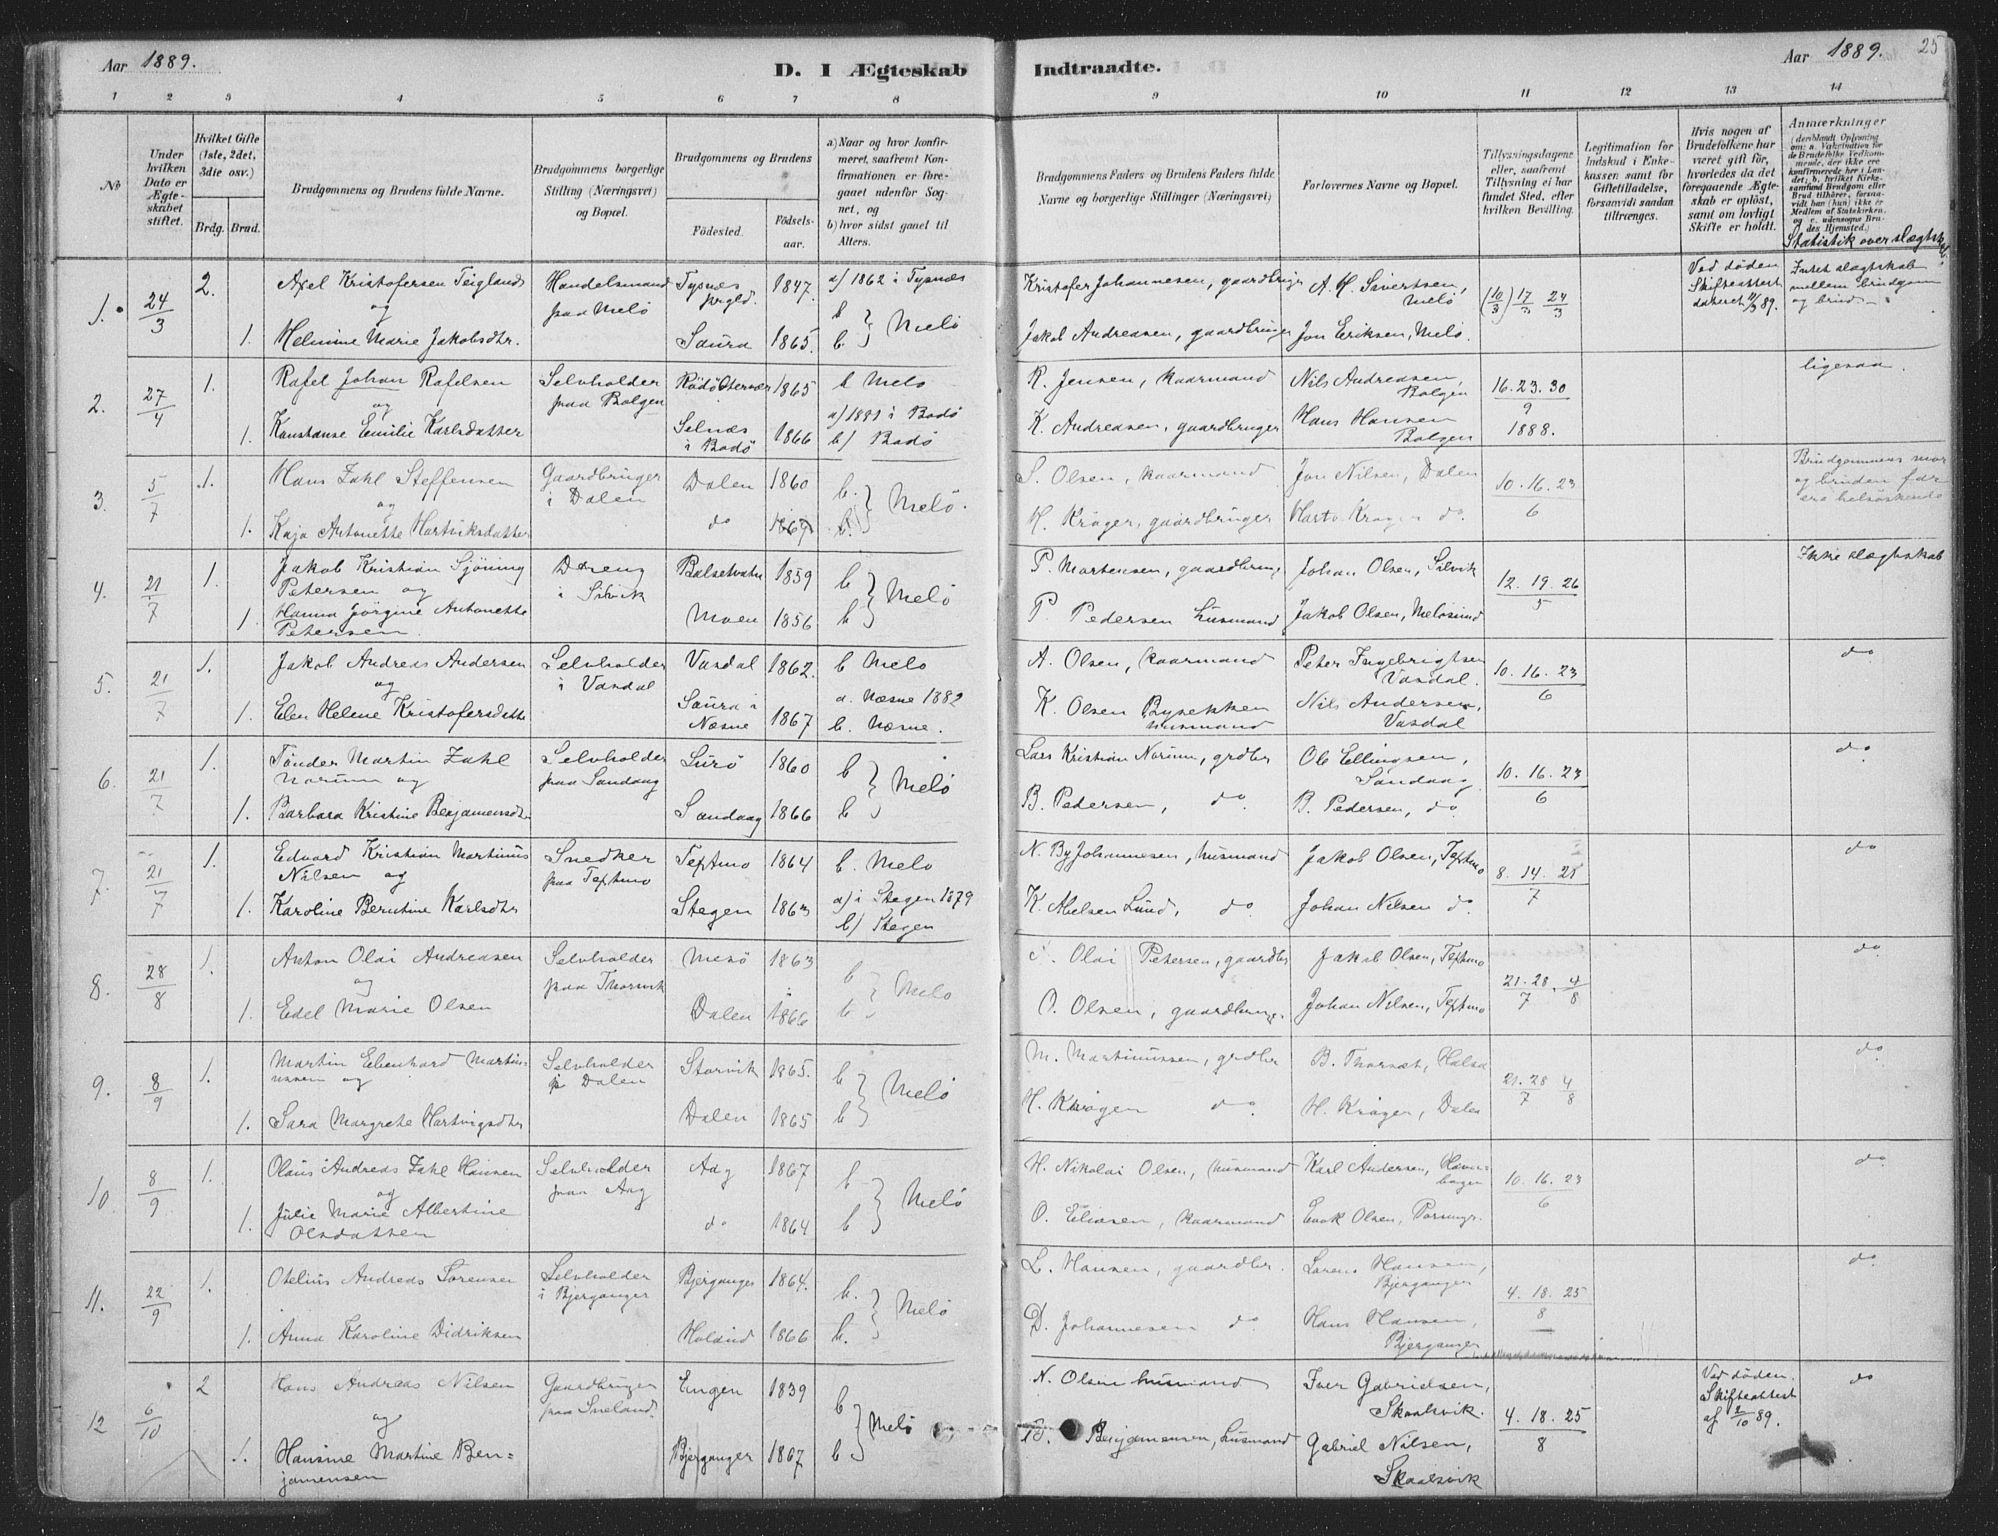 Aar 1889.
D. I Ægteskab Indtraadte.
Aar 1889. 25
1 2 3 4 5 6 7 8 9 10 11 12 13 14
No
Under hvilken Dato er Ægteskabet stiftet.
Hvilket Gifte (1ste, 2det, 3die osv.)
Brdg. Brud.
Brudgommens og Brudens fulde Navne.
Brudgommens borgerlige Stilling (Næringsvei) og Bopæl.
Brudgommens og Brudens
Fødested.
Fødsels-aar.
a) Naar og hvor konfirmeret, saafremt Konfirmationen er foregaaet udenfor Sognet, og
b) hvor sidst ganet til Alters.
Brudgommens Faders og Brudens Faders fulde Navne og borgerlige Stillinger (Næringsvei)
Forlovernes Navne og Bopæl.
Tillysningsdagene eller, saafremt Tillysning ei har fundet Sted, efter hvilken Bevilling.
Legitimation for Indskud i Enkekassen samt for Giftetilladelse, forsaavidt saadan tiltrænges.
Hvis nogen af Brudefolkene har været gift før, hvorledes da det foregaaende Ægteskab er opløst, samt om lovligt Skifte er holdt.
Anmærkninger
Statistik over slægtsk.
1. 24/3 2. Axel Kristofersen Teigland Handelsmand Tysnes 1847. a) 1862 i Tysnæs
og paa Melö prgld. b } Melö
1. Helmine Marie Jakobsdtr. Saura 1865. b.
Kristofer Johannesen, gaardbruger A. H. Sivertsen, Melö (10/3) 17/3 24/3
Ved døden Skifteattest dateret 11/3 89. Intet slægtskab mellem brudgom og brud
Jakob Andreasen, gaardbruger Jon Eriksen, Melö.
2. 27/4 1. Rafel Johan Rafelsen Selvholder Rödö 1865 b Melö
og paa Bolgen
1. Konstanse Emilie Karlsdatter Selnæs i Bodö 1866 a) 1881 i Bodö b) Bodö
R. Jensen, kaarmand Nils Andreasen, Bolgen 16. 23. 30 / 9 1888. ligesaa.
K. Andreasen, gaardbruger Hans Hansen Bolgen
3. 5/7 1. Hans Zahl Steffensen Gaardbruger Dalen 1860 b. } Melö.
og i Dalen
1. Kaja Antonette Hartviksdatter do 1867 b.
S. Olsen, kaarmand Jon Nilsen, Dalen 10. 16. 23 / 6 Brudgommens mor og bruden far ere helsöskende
H. Kröger, gaardbruger Hartv. Kröger do.
4. 21/7 1. Jakob Kristian Sjöning Dreng 1859 b } Melö
Petersen og i Silvik
1. Hanna Jörgine Antonette Moen 1856 b
Petersen.
P. Mortensen, gaardbruger Johan Olsen, Silvik 12. 19. 26 / 5 Ikke slægtskab
P Pedersen husmand Jakob Olsen, Melösund
5. 21/7 1. Jakob Andreas Andersen Selvholder Vasdal 1862. b Melö
og i Vasdal
1. Elen Helene Kristofersdatter Saura i Næsne 1867 a. Næsne 1882 b. Næsne.
A. Olsen, kaarmand Peter Ingebrigtsen Vasdal. 10. 16. 23 / 6 do
K. Olsen Bysekken husmand Nils Andersen, Vasdal
6. 21/7 1. Tönder Martin Zahl Selvholder Lurö 1860 b } Melö
Norum og paa Sandaag
1. Barbara Kristine Benjamensdtr Sandaag 1866 b
Lars Kristian Norum, grdbr Ole Ellingsen, Sandaag 10. 16. 23 / 6 do
B. Pedersen, do B. Pedersen, do
7. 21/7 1. Edvard Kristian Martinus Snedker Texmo 1864 b. Melö
Nilsen og paa Texmo
1. Karoline Berntine Karlsdtr Stegen 1863 a) i Stegen 1879 b) Stegen
N. By Johannesen, husmand Jakob Olsen, Texmo 8. 14. 28 / 7 do
K. Nielsen Lund, do. Johan Nilsen do.
8. 28/8 1. Anton Olai Andreasen Selvholder Mesö 1863 b } Melö
og paa Thorsvik
1. Edel Marie Olsen Dalen 1866 b
Olai Petersen, gaardbr Jakob Olsen, Texmo 21. 28. / 7 4/8 do
O. Olsen, gaardbruger Johan Nilsen, Texmo
9. 8/9 1. Martin Edenhard Martinussen og Selvholder Storvik 1865. b } Melö
p. Dalen
1. Sara Margrete Hartvigsdtr Dalen 1865 b
M. Martinussen, grdbr B. Halsa 21. 28 / 7 4/8 do
H. Kröger do H. Kröger, Dalen
10. 8/9 1. Olaus Andreas Zahl Hansen Selvholder Aag 1867 b } Melö
og paa Aag
1. Julie Marie Albertine do 1864 b
Olsdatter
H. Nikolai Olsen, husmand Karl Andersen, 10. 16. 23 / 6 do
O. Eliasen, kaarmand Olsen,
11. 22/9 1. Otelius Andreas Sörensen Selvholder Bjerganger 1864. b. } Melö
i Bjerganger
1. Anna Karoline Didriksen Holand 1866 b.
L. Hansen, gaardbr. Lorens Hansen, Bjerganger 4. 18. 25 / 8 do
D. Johannesen do. Hans Hansen, Bjerganger
12 6/10 2 Hans Andreas Nilsen Gaardbruger Engen 1839 b } Melö
og paa Sneland.
1. Hansine Martine Ben= Bjerganger 1867 b
jamensen
N. Olsen husmand Iver Gabrielsen, Skaalsvik. 4. 18. 25 / 8 Ved döden. Skifteattest af 2/10 89. do
Benjamensen, husmand Gabriel Nilsen, Skaalsvik